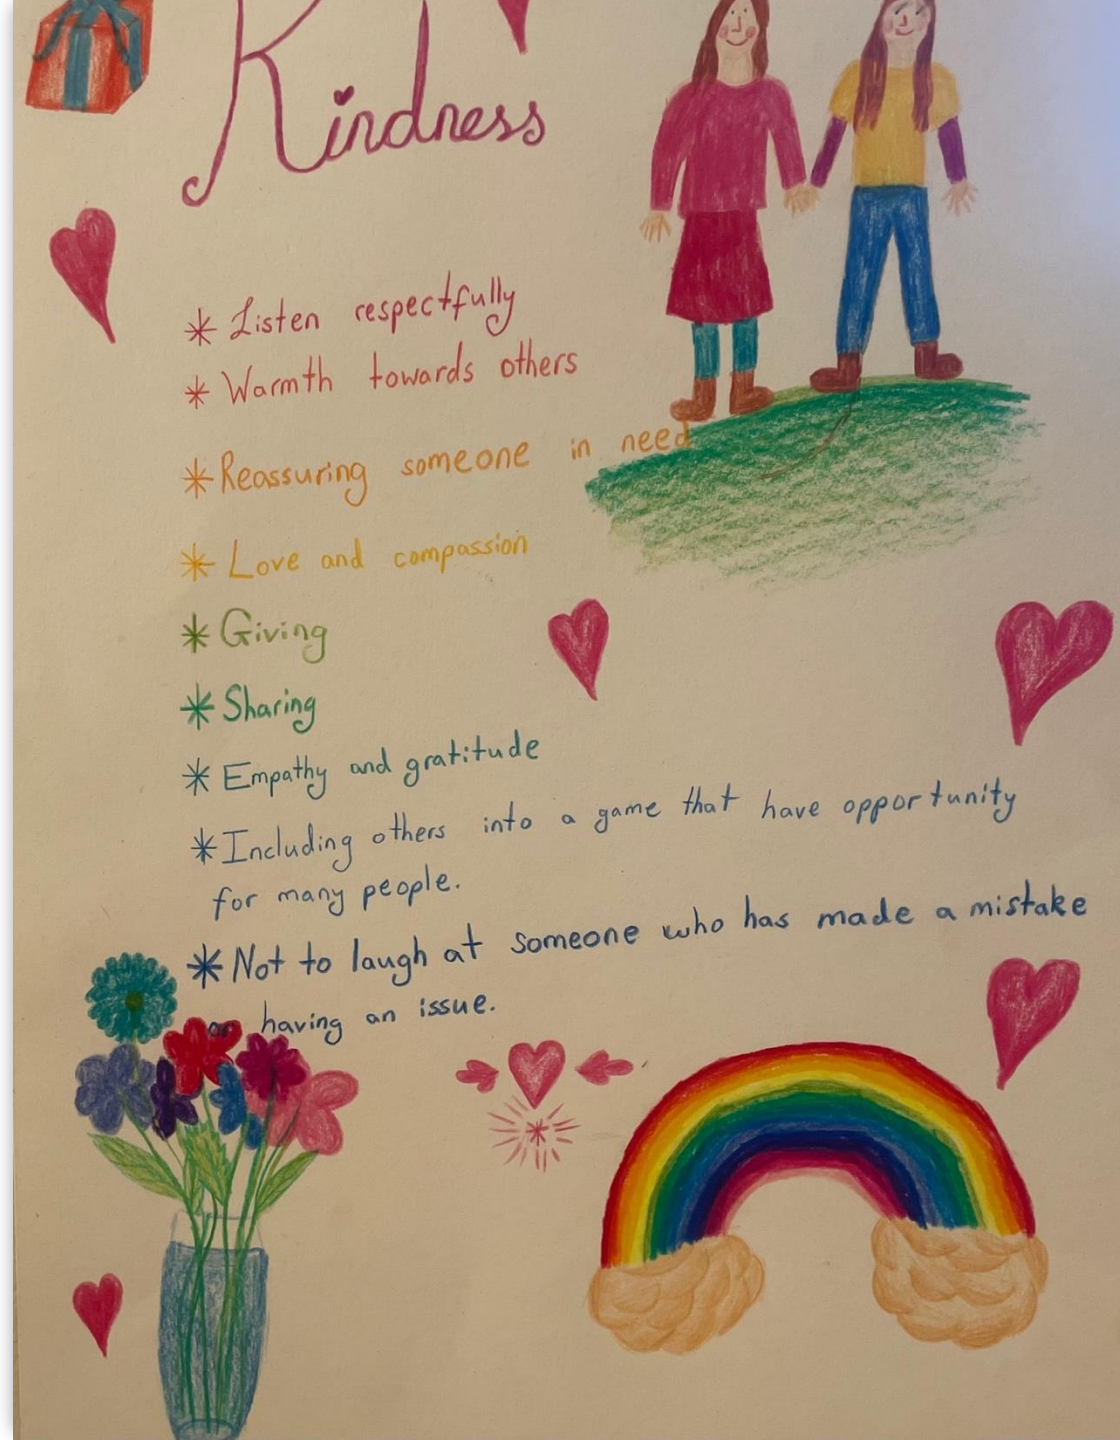 Kindness
* Listen respectfully
* Warmth towards others
* Reassuring someone in need
* Love and compassion
* Giving
* Sharing
* Empathy and gratitude
* Including others into a game that have opportunity
for many people.
* Not to laugh at someone who has made a mistake
or having an issue.